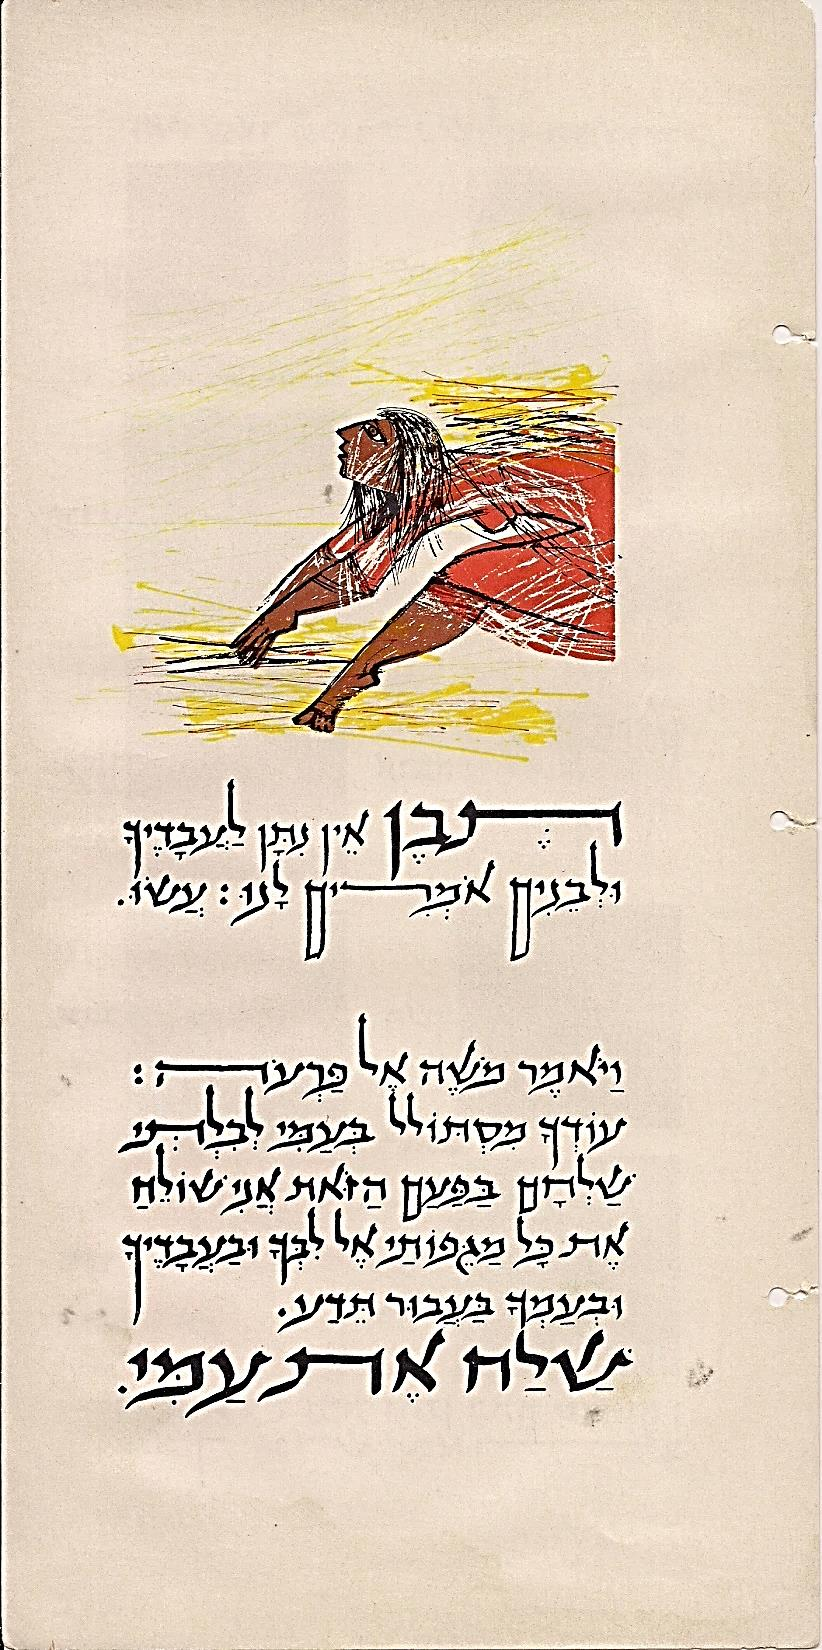 תֶּבֶן אֵין נִתָּן לַעֲבָדֶיךָ
וּלְבֵנִים אֹמְרִים לָנוּ : עֲשׂוּ.
וַיֹּאמֶר מֹשֶׁה אֶל פַּרְעֹה :
עוֹדְךָ מִסְתּוֹלֵל בְּעַמִּי לְבִלְתִּי
שַׁלְּחָם בַּפַּעַם הַזֹּאת אֲנִי שׁוֹלֵחַ
אֶת כָּל מַגֵּפוֹתַי אֶל לִבְּךָ וּבַעֲבָדֶיךָ
וּבְעַמְּךָ בַּעֲבוּר תֵּדַע.
שַׁלַּח אֶת עַמִּי.